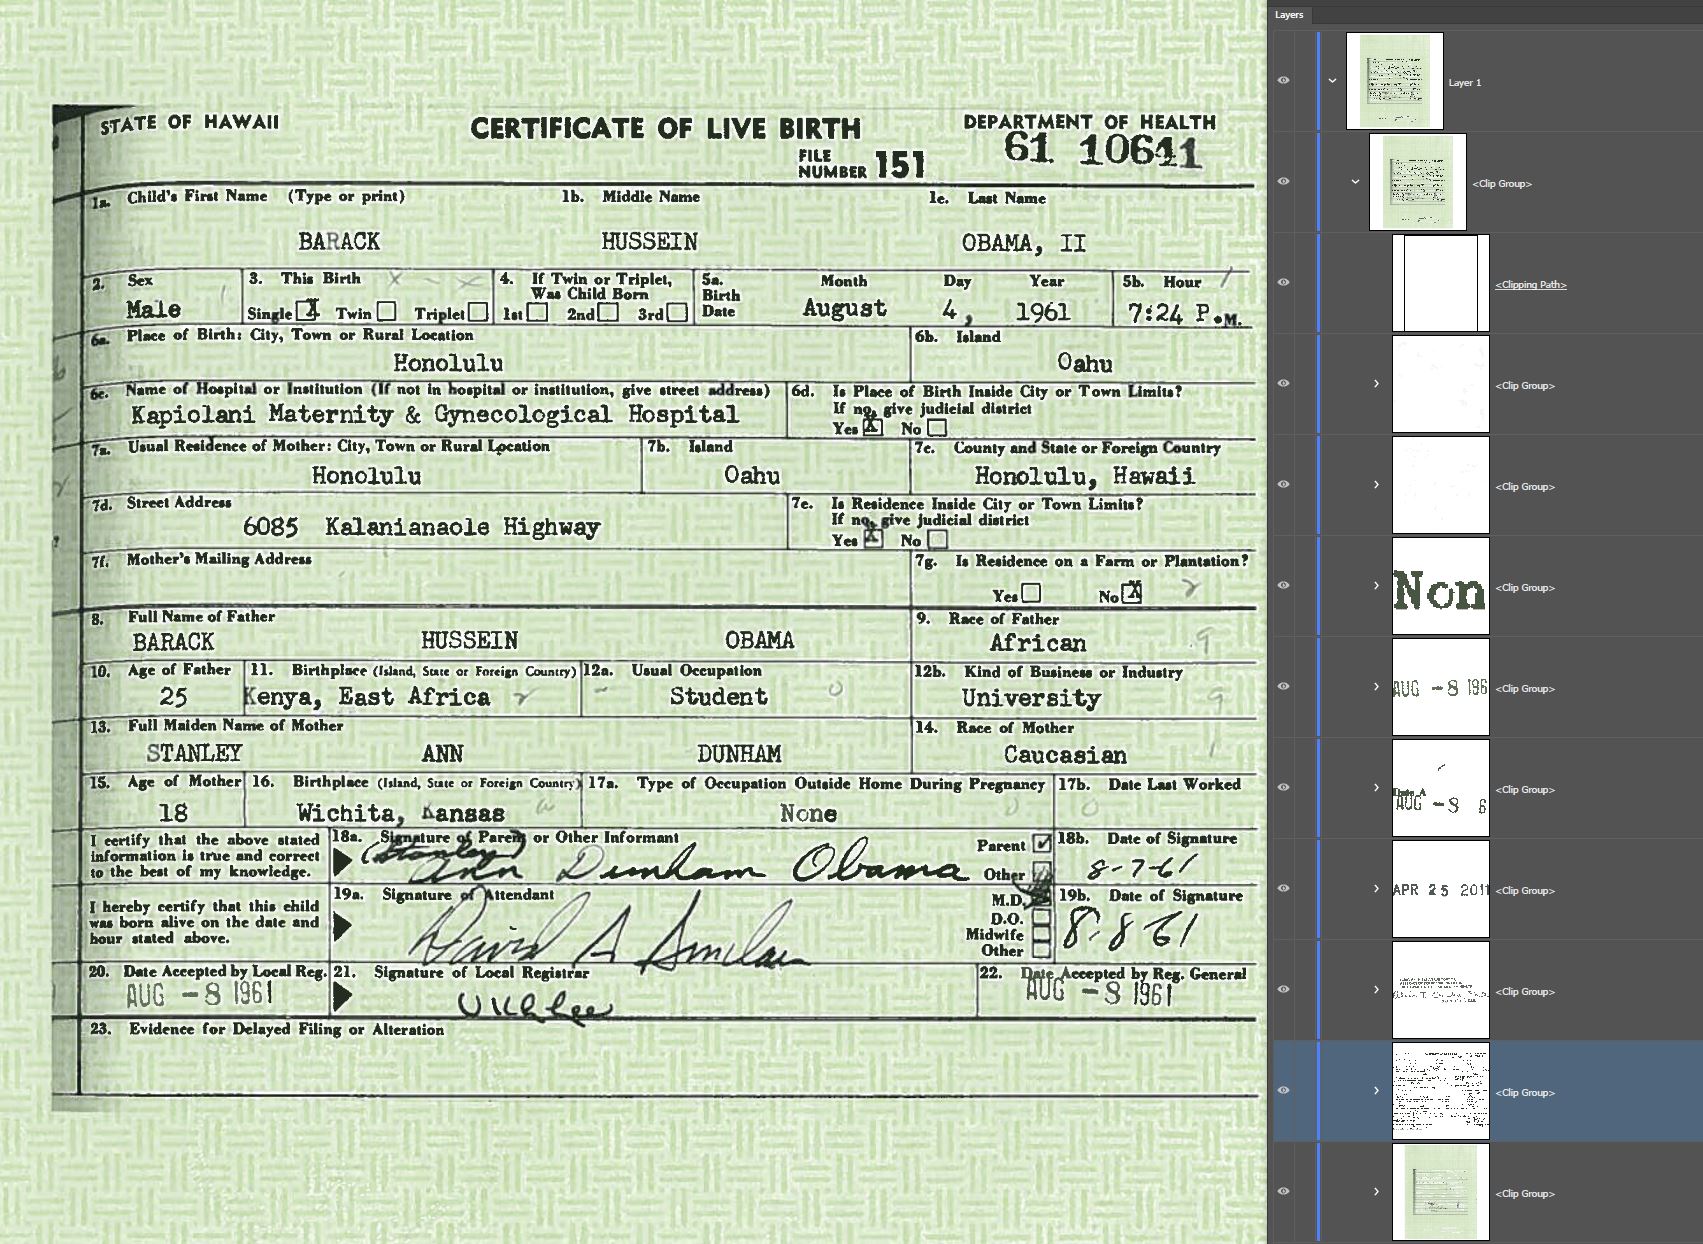 STATE OF HAWAII
CERTIFICATE OF LIVE BIRTH
DEPARTMENT OF HEALTH
FILE NUMBER 151
61 10641
1a. Child's First Name (Type or print)
1b. Middle Name
1c. Last Name
BARACK
HUSSEIN
OBAMA, II
2. Sex
Male
3. This Birth
Single X Twin Triplet
4. If Twin or Triplet,
Was Child Born
1st 2nd 3rd
5a. Birth Date
Month Day Year
August 4, 1961
5b. Hour
7:24 P.M.
6a. Place of Birth: City, Town or Rural Location
Honolulu
6b. Island
Oahu
6c. Name of Hospital or Institution (If not in hospital or institution, give street address)
Kapiolani Maternity & Gynecological Hospital
6d. Is Place of Birth Inside City or Town Limits?
If no, give judicial district
Yes X No
7a. Usual Residence of Mother: City, Town or Rural Location
Honolulu
7b. Island
Oahu
7c. County and State or Foreign Country
Honolulu, Hawaii
7d. Street Address
6085 Kalanianaole Highway
7e. Is Residence Inside City or Town Limits?
If no, give judicial district
Yes X No
7f. Mother's Mailing Address
7g. Is Residence on a Farm or Plantation?
Yes No X
8. Full Name of Father
BARACK HUSSEIN OBAMA
9. Race of Father
African
10. Age of Father
25
11. Birthplace (Island, State or Foreign Country)
Kenya, East Africa
12a. Usual Occupation
Student
12b. Kind of Business or Industry
University
13. Full Maiden Name of Mother
STANLEY ANN DUNHAM
14. Race of Mother
Caucasian
15. Age of Mother
18
16. Birthplace (Island, State or Foreign Country)
Wichita, Kansas
17a. Type of Occupation Outside Home During Pregnancy
None
17b. Date Last Worked
I certify that the above stated
information is true and correct
to the best of my knowledge.
18a. Signature of Parent or Other Informant
(Stanley) Ann Dunham Obama
Parent
Other
18b. Date of Signature
8-7-61
I hereby certify that this child
was born alive on the date and
hour stated above.
19a. Signature of Attendant
David A Sinclair
M.D.
D.O.
Midwife
Other
19b. Date of Signature
8-8-61
20. Date Accepted by Local Reg.
AUG -8 1961
21. Signature of Local Registrar
22. Date Accepted by Reg. General
AUG -8 1961
23. Evidence for Delayed Filing or Alteration
Layers
Layer 1
<Clip Group>
<Clipping Path>
<Clip Group>
<Clip Group>
Non
<Clip Group>
AUG -8 196
<Clip Group>
Date A
AUG -8 6
<Clip Group>
APR 25 2011
<Clip Group>
<Clip Group>
<Clip Group>
<Clip Group>